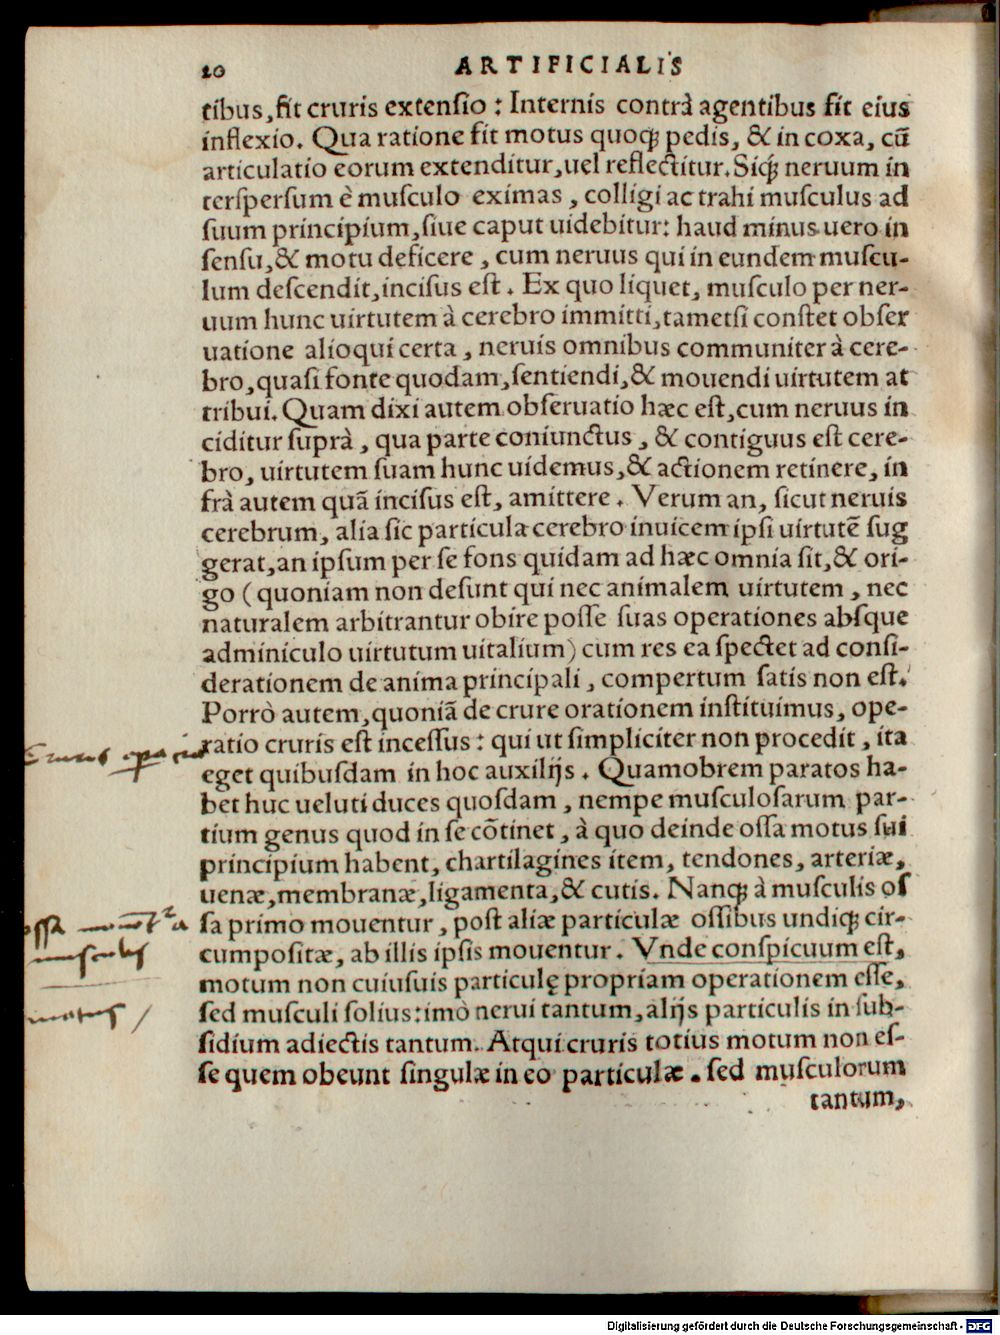 20 ARTIFICIALIS
tibus, fit cruris extensio : Internis contrà agentibus fit eius
inflexio. Qua ratione fit motus quoq; pedis, & in coxa, cũ
articulatio eorum extenditur, uel reflectitur. Siq; neruum in
terspersum è musculo eximas, colligi ac trahi musculus ad
suum principium, siue caput uidebitur: haud minus uero in
sensu, & motu deficere, cum neruus qui in eundem muscu-
lum descendit, incisus est. Ex quo liquet, musculo per ner-
uum hunc uirtutem à cerebro immitti, tametsi constet obser
uatione alioqui certa, neruis omnibus communiter à cere-
bro, quasi fonte quodam, sentiendi, & mouendi uirtutem at
tribui. Quam dixi autem obseruatio hæc est, cum neruus in
ciditur suprà, qua parte coniunctus, & contiguus est cere-
bro, uirtutem suam hunc uidemus, & actionem retinere, in
frà autem quã incisus est, amittere. Verum an, sicut neruis
cerebrum, alia sic particula cerebro inuicem ipsi uirtutẽ sug
gerat, an ipsum per se fons quidam ad hæc omnia sit, & ori-
go (quoniam non desunt qui nec animalem uirtutem, nec
naturalem arbitrantur obire posse suas operationes absque
adminiculo uirtutum uitalium) cum res ea spectet ad consi-
derationem de anima principali, compertum satis non est.
Porrò autem, quoniã de crure orationem instituimus, ope-
ratio cruris est incessus: qui ut simpliciter non procedit, ita
eget quibusdam in hoc auxilijs. Quamobrem paratos ha-
bet huc ueluti duces quosdam, nempe musculosarum par-
tium genus quod in se cõtinet, à quo deinde ossa motus sui
principium habent, chartilagines item, tendones, arteriæ,
uenæ, membranæ, ligamenta, & cutis. Nanq; à musculis os
sa primo mouentur, post aliæ particulæ ossibus undiq; cir-
cumpositæ, ab illis ipsis mouentur. Vnde conspicuum est,
motum non cuiusuis particulę propriam operationem esse,
sed musculi solius: imò nerui tantum, alijs particulis in sub-
sidium adiectis tantum. Atqui cruris totius motum non es-
se quem obeunt singulæ in eo particulæ. sed musculorum
tantum,
Cruris
musculis
motus
Digitalisierung gefördert durch die Deutsche Forschungsgemeinschaft - DFG